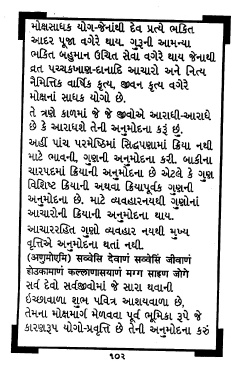 મોક્ષસાધક યોગ-જેનાંથી દેવ પ્રત્યે ભકિત
આદર પૂજા વગેરે થાય. ગુરૂની આમન્યા
ભકિત બહુમાન ઉચિત સેવા વગેરે થાય જેનાથી
વ્રત પચ્ચકખાણ-દાનાદિ આચારો અને નિત્ય
નૈમિત્તિક વાર્ષિક કૃત્ય, જીવન કૃત્ય વગેરે
મોક્ષનાં સાધક યોગો છે.
તે ત્રણે કાળમાં જે જે જીવોએ આરાધી-આરાધે
છે કે આરાધશે તેની અનુમોદના કરૂં છું.
અહીં પાંચ પરમેષ્ઠિમાં સિદ્ધપણામાં ક્રિયા નથી
માટે ભાવની, ગુણની અનુમોદના કરી. બાકીના
ચારપદમાં ક્રિયાની અનુમોદના છે એટલે કે ગુણ
વિશિષ્ટ ક્રિયાની અથવા ક્રિયાપૂર્વક ગુણની
અનુમોદના છે. માટે વ્યવહારનયથી ગુણોનાં
આચારોની ક્રિયાની અનુમોદના થાય.
આચારરહિત ગુણો વ્યવહાર નયથી મુખ્ય
વૃત્તિએ અનુમોદના થતાં નથી.
(અણુમોએમિ) સવ્વેસિ દેવાણં સવ્વેસિં જીવાણં
હોઉકામાણં કલ્લાણાસયાણં મગ્ગ સાહણ જોગે
સર્વ દેવો સર્વજીવોમાં જે સારા થવાની
ઇચ્છાવાળા શુભ પવિત્ર આશયવાળા છે,
તેમના મોક્ષમાર્ગ મેળવવા પૂર્વ ભૂમિકા રૂપે જે
કારણરૂપ યોગો-પ્રવૃત્તિ છે તેની અનુમોદના કરું
૧૦૨